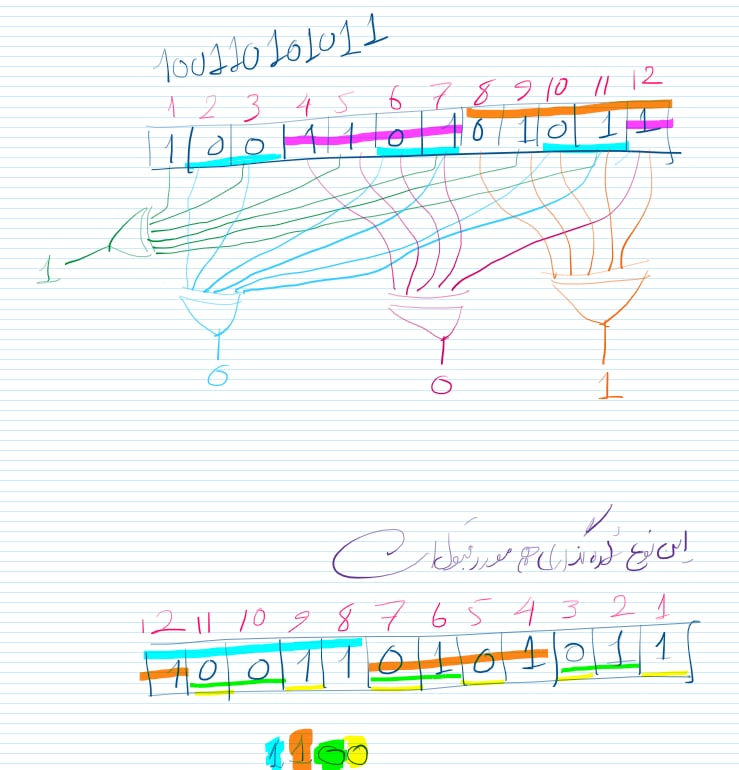 100110101011
1 2 3 4 5 6 7 8 9 10 11 12
1 0 0 1 1 0 1 0 1 0 1 1
1
0 0 1
این نوع هم مورد قبول است
12 11 10 9 8 7 6 5 4 3 2 1
1 0 0 1 1 0 1 0 1 0 1 1
1100